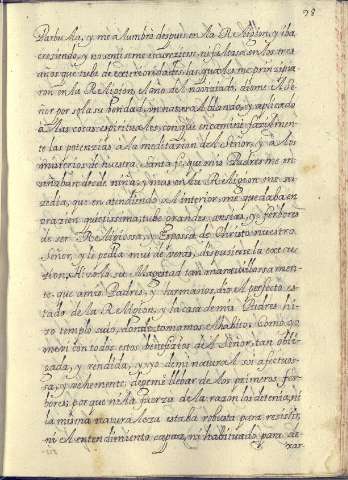 78
Parbulla, y me alumbro despues en la Religion, y iba
creziendo, y no sentirme incorrexir, ni faltosa en los tres
años que tube de exterioridades las quales me prinzipia
ron en la Religion, el año de Nobiziado, diome el Se
ñor por sola su bondad, un natural blando, y aplicado
a las cosas espirituales, con que encaminè fazilmen
te las potenzias a la meditazion del Señor, y a los
misterios de nuestra Santa fe, que mis Padres me en
señaban desde niña, y mas en la Religion me su
zedia, que en atendiendo al interior, me quedaba en
orazion quietissima, tube grandes ansias, y ferbores
de ser Religiosa, y Esposa de Christo nuestro
Señor, y le pedia mui de veras, dispusiese la execu
zion. Hizolo su Magestad tan marauillosamen
te, que a mis Padres, y hermanos, dio el perfecto es
tado de la Religion, y la casa de mis Padres hi
zo templo suio, donde tomamos el habito. Como yo
me vi con todos estos benefizios del Señor, tan obli
gada, y rendida, y yo de mi natural soi afectuos
sa, y vehemente, dejeme llebar de los primeros fer
bores, porque ni la fuerza de la razon los detenia, ni
la misma naturaleza estaba robusta para resistir,
ni el entendimiento capaz, ni habituado, para de
xar